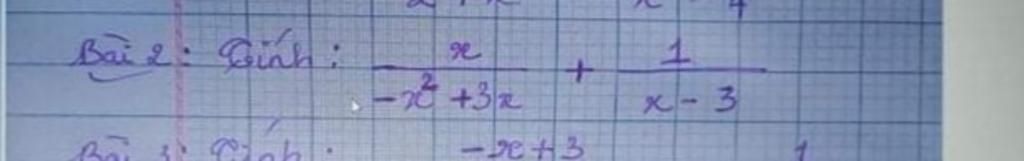 Bài 2 : Tính : x / (-x² + 3x) + 1 / (x - 3)
Tính : -x + 3 1